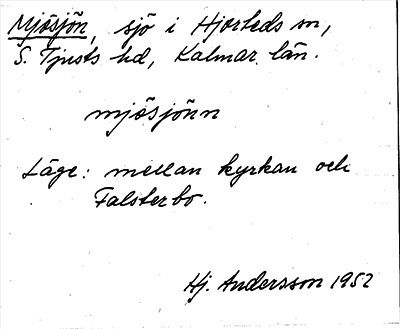 Mjösjön, sjö i Hjorteds sn,
S. Tjusts hd, Kalmar län.
mjösjönn
Läge: mellan kyrkan och
Falsterbo.
Hj. Andersson 1952